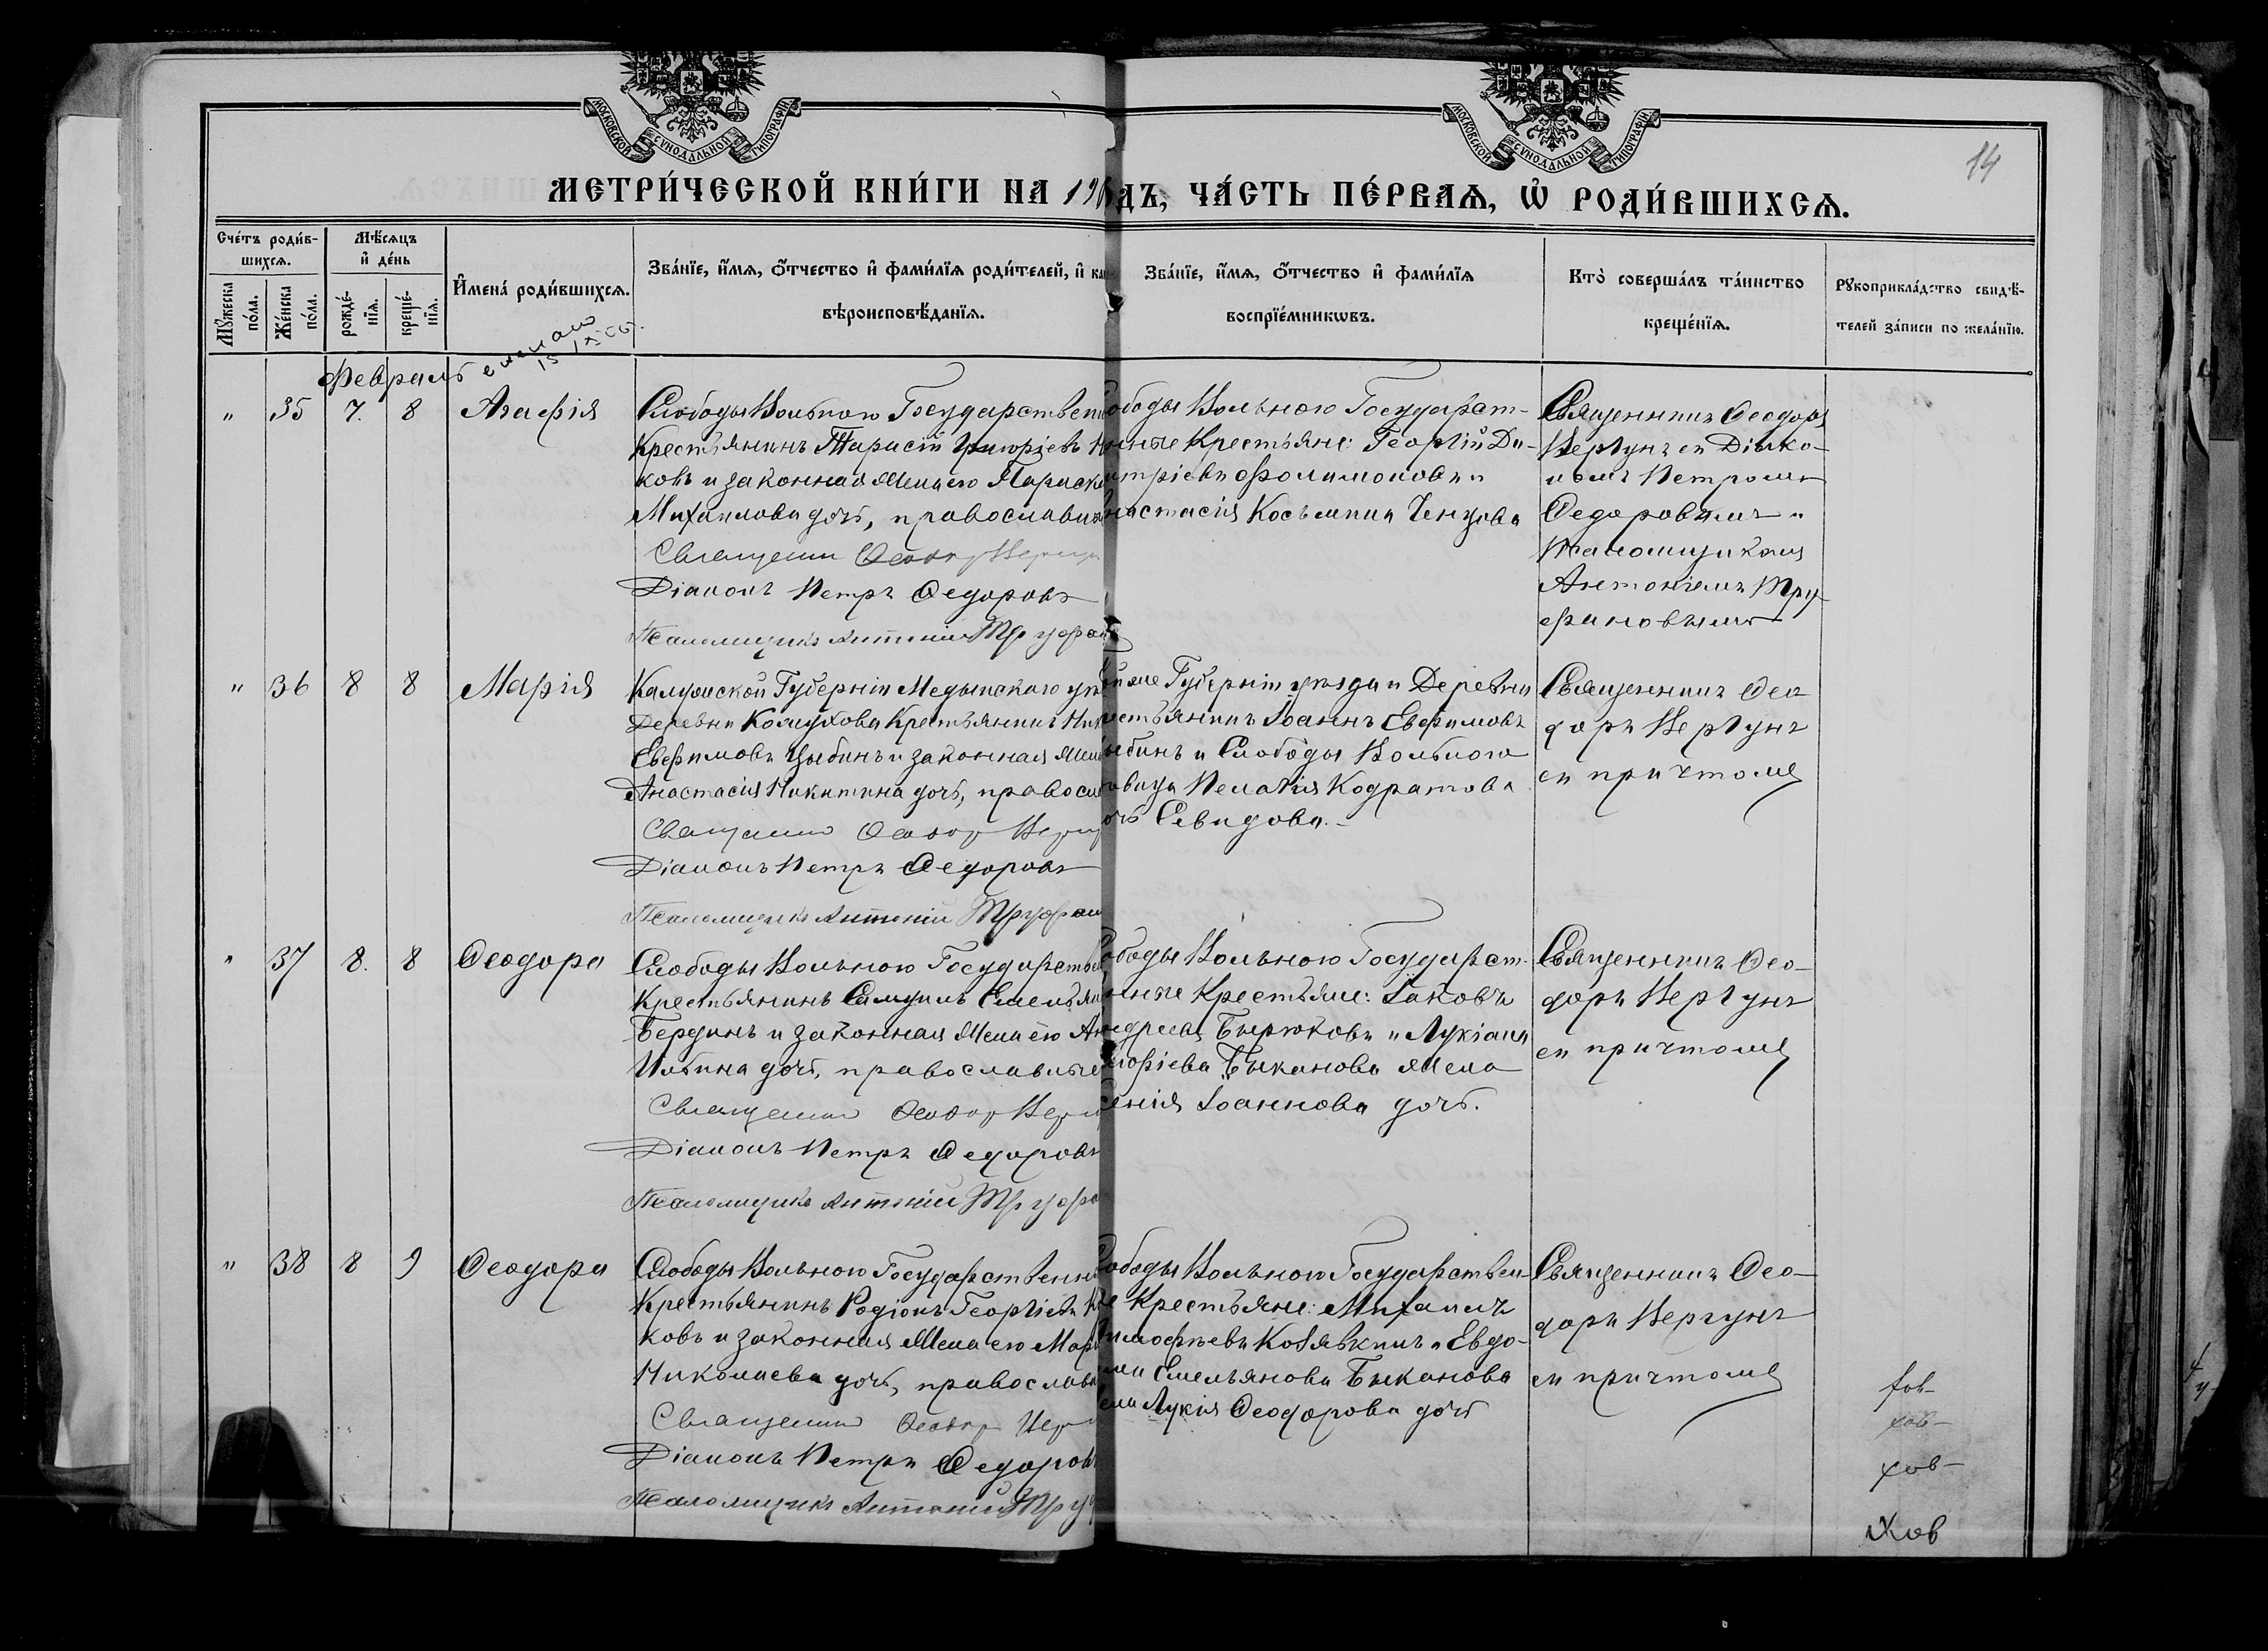 МОСКОВСКОЙ СѴНОДАЛЬНОЙ ТИПОГРАФІИ
МОСКОВСКОЙ СѴНОДАЛЬНОЙ ТИПОГРАФІИ
14
МЕТРИ́ЧЕСКОЙ КНИ́ГИ НА 19
ДЪ, ЧА́СТЬ ПЕ́РВАѦ, Ѡ҆ РОДИ́ВШИХСѦ.
Сче́тъ роди́в-
шихсѧ.
Мꙋ́жеска
по́ла.
Же́нска
по́ла.
Мѣ́сѧцъ
и҆ де́нь
рожде́-
нїѧ.
креще́-
нїѧ.
И҆мена̀ роди́вшихсѧ.
Зва́нїе, и҆́мѧ, ѻ҆́тчество и҆ фами́лїѧ роди́телей, и҆ ка
вѣроисповѣ́данїѧ.
Зва́нїе, и҆́мѧ, ѻ҆́тчество и҆ фами́лїѧ
воспрїе́мникѡвъ.
Кто̀ соверша́лъ та́инство
креще́нїѧ.
Рꙋкоприкла́дство свидѣ́-
телей за́писи по жела́нїю.
Февраль
„ 35 7. 8 Агафія
Слободы Вольного Государствен
Крестьянинъ Тарасій Григоріевъ
ковъ и законная жена его Параске
Михаилова дочь, православн
Священникъ Ѳеодоръ
Діаконъ Петръ Ѳедоровъ
Псаломщикъ Антоній Труфан
ободы Вольного Государст-
енные Крестьяне: Георгій Ди-
итріевъ Филимоновъ и
настасія Косьмина Ченцова
Священникъ Ѳеодоръ
Вергунъ съ Діако-
номъ Петромъ
Ѳедоровымъ и
Псаломщикомъ
Антоніемъ Тру-
фановымъ
„ 36 8 8 Марія
Калужской Губерніи Медынскаго уѣ
Деревни Кожухова Крестьянинъ Ни
Евфимовъ Цыбинъ и законная жен
Анастасія Никитина дочь, правосла
Священникъ Ѳеодоръ
Діаконъ Петръ Ѳедоровъ
Псаломщикъ Антоній Труфан
ой же Губерніи уѣзда и Деревни
рестьянинъ Іоаннъ Евфимовъ
ыбинъ и Слободы Вольного
ѣвица Пелагія Кодратова
очь Севидова.
Священникъ Ѳео
доръ Вергунъ
съ причтомъ
„ 37 8. 8 Ѳеодора
Слободы Вольного Государствен
Крестьянинъ Самуилъ Емельян
Бердинъ и законная жена его Ан
Ильина дочь, православные
Священникъ Ѳеодоръ
Діаконъ Петръ Ѳедоровъ
Псаломщикъ Антоній Труфа
ободы Вольного Государст-
енные Крестьяне: Іаковъ
ндреевъ Бирюковъ и Лукіана
горіева Быканова жена
сенія Іоаннова дочь.
Священникъ Ѳео-
доръ Вергунъ
съ причтомъ
„ 38 8 9 Ѳеодора
Слободы Вольного Государственн
Крестьянинъ Родіонъ Георгіевъ
ковъ и законная жена его Мар
Николаева дочь, православн
Священникъ Ѳеодоръ
Діаконъ Петръ Ѳедоровъ
Псаломщикъ Антоній Тру
ободы Вольного Государствен-
е Крестьяне: Михаилъ
имофѣевъ Козявкинъ и Евдо-
има Емельянова Быканова
ена Лукія Ѳеодорова дочь
Священникъ Ѳео-
доръ Вергунъ
съ причтомъ
хов